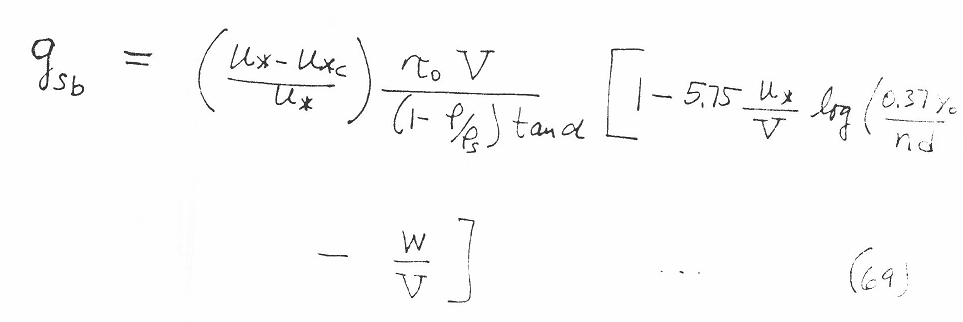 g_sb = ((u* - u*c) / u*) (τ₀ V / ((1 - ρ/ρs) tan α)) [1 - 5.75 (u*/V) log (0.37 y₀ / nd
- W/V ] ... (69)